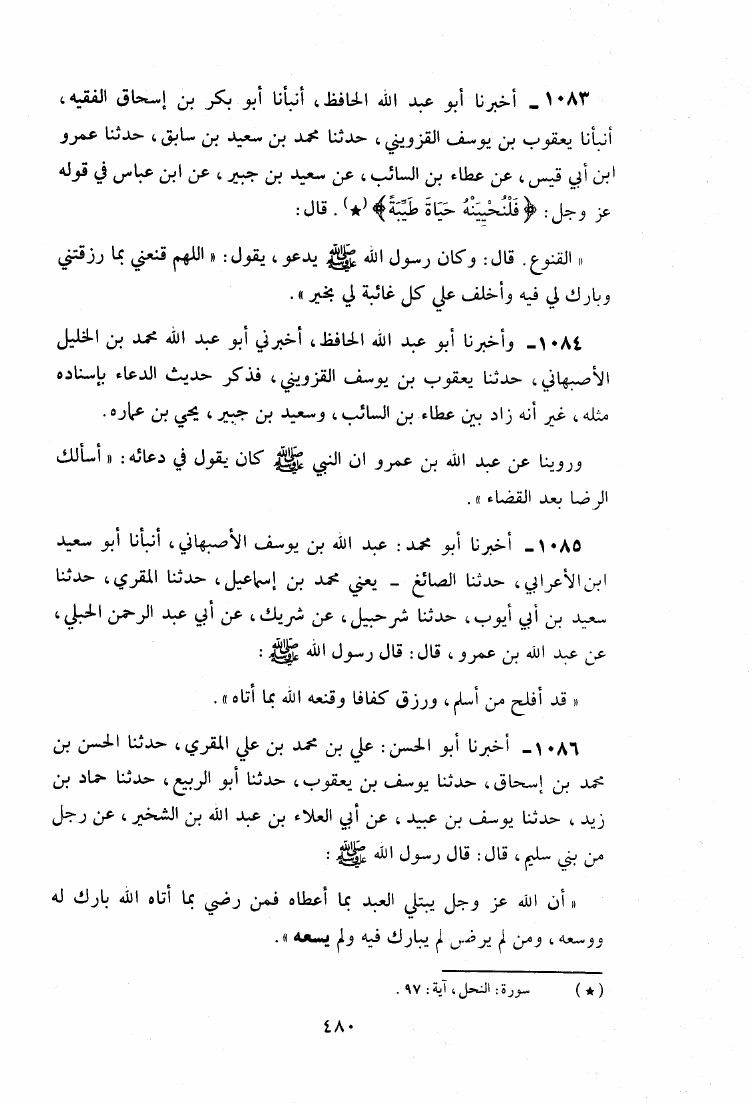 ١٠٨٣ ـ أخبرنا أبو عبد الله الحافظ، أنبأنا أبو بكر بن إسحاق الفقيه،
أنبأنا يعقوب بن يوسف القزويني، حدثنا محمد بن سعيد بن سابق، حدثنا عمرو
ابن أبي قيس، عن عطاء بن السائب، عن سعيد بن جبير، عن ابن عباس في قوله
عز وجل: ﴿فَلَنُحْيِيَنَّهُ حَيَاةً طَيِّبَةً﴾ (★). قال:
« القنوع. قال: وكان رسول الله ﷺ يدعو، يقول: « اللهم قنعني بما رزقتني
وبارك لي فيه وأخلف علي كل غائبة لي بخير ».
١٠٨٤ ـ وأخبرنا أبو عبد الله الحافظ، أخبرني أبو عبد الله محمد بن الخليل
الأصبهاني، حدثنا يعقوب بن يوسف القزويني، فذكر حديث الدعاء بإسناده
مثله، غير أنه زاد بين عطاء بن السائب، وسعيد بن جبير، يحي بن عماره.
وروينا عن عبد الله بن عمرو ان النبي ﷺ كان يقول في دعائه: « أسألك
الرضا بعد القضاء ».
١٠٨٥ ـ أخبرنا أبو محمد: عبد الله بن يوسف الأصبهاني، أنبأنا أبو سعيد
ابن الأعرابي، حدثنا الصائغ ـ يعني محمد بن إسماعيل، حدثنا المقري، حدثنا
سعيد بن أبي أيوب، حدثنا شرحبيل، عن شريك، عن أبي عبد الرحمن الحبلي،
عن عبد الله بن عمرو، قال: قال رسول الله ﷺ :
« قد أفلح من أسلم، ورزق كفافا وقنعه الله بما أتاه ».
١٠٨٦ ـ أخبرنا أبو الحسن: علي بن محمد بن علي المقري، حدثنا الحسن بن
محمد بن إسحاق، حدثنا يوسف بن يعقوب، حدثنا أبو الربيع، حدثنا حماد بن
زيد، حدثنا يوسف بن عبيد، عن أبي العلاء بن عبد الله بن الشخير، عن رجل
من بني سليم، قال: قال رسول الله ﷺ :
« أن الله عز وجل يبتلي العبد بما أعطاه فمن رضي بما أتاه الله بارك له
ووسعه، ومن لم يرض لم يبارك فيه ولم يسعه ».
(★) سورة: النحل، آية: ٩٧.
٤٨٠